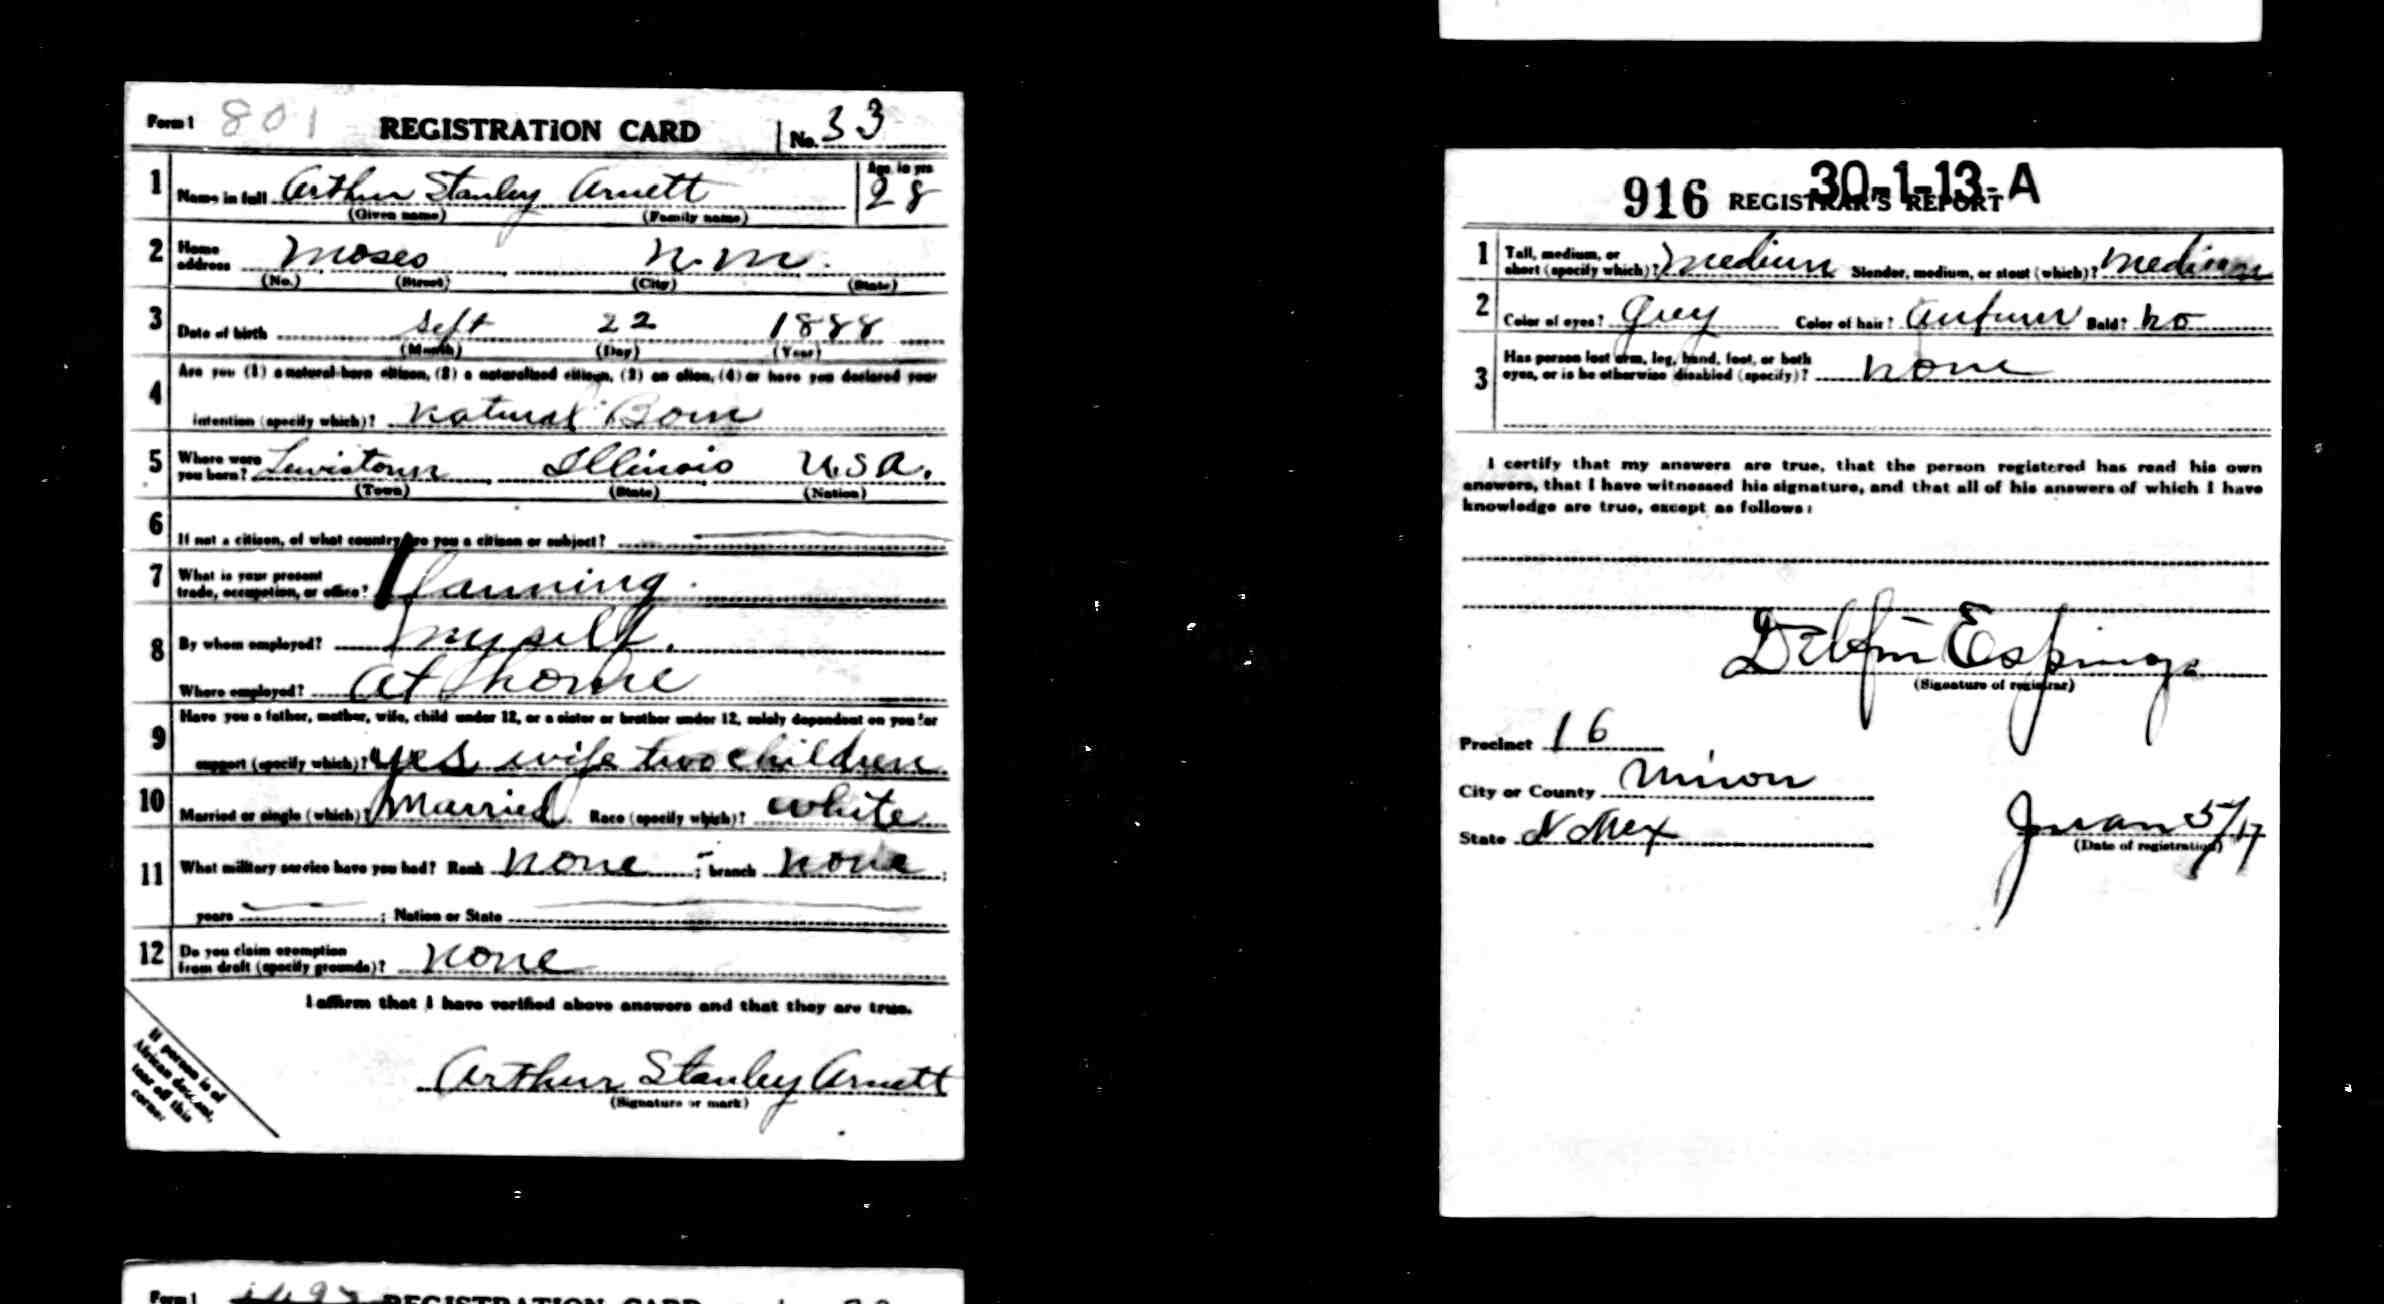 Form 1 801 REGISTRATION CARD No. 33
1 Name in full Arthur Stanley Arnett Age, in yrs 28
(Given name) (Family name)
2 Home address Moses N.M.
(No.) (Street) (City) (State)
3 Date of birth Sept 22 1888
(Month) (Day) (Year)
4 Are you (1) a natural-born citizen, (2) a naturalized citizen, (3) an alien, (4) or have you declared your
intention (specify which)? Natural Born
5 Where were you born? Lewistown Illinois U.S.A.
(Town) (State) (Nation)
6 If not a citizen, of what country are you a citizen or subject?
7 What is your present
trade, occupation, or office? farming.
8 By whom employed? myself.
Where employed? At home
9 Have you a father, mother, wife, child under 12, or a sister or brother under 12, solely dependent on you for
support (specify which)? yes wife two children
10 Married or single (which)? Married Race (specify which)? white
11 What military service have you had? Rank none ; branch none ;
years ; Nation or State
12 Do you claim exemption
from draft (specify grounds)? none
I affirm that I have verified above answers and that they are true.
Arthur Stanley Arnett
(Signature or mark)
If person is of
African descent,
tear off this
corner
Form 1 REGISTRATION CARD
30-1-13-A
916 REGISTRAR'S REPORT
1 Tall, medium, or
short (specify which)? medium Slender, medium, or stout (which)? medium
2 Color of eyes? Grey Color of hair? Bald? no
3 Has person lost arm, leg, hand, foot, or both
eyes, or is he otherwise disabled (specify)? none
I certify that my answers are true, that the person registered has read his own
answers, that I have witnessed his signature, and that all of his answers of which I have
knowledge are true, except as follows:
Delfin Espinoza
(Signature of registrar)
Precinct 16
City or County Union
State N Mex
5/17
(Date of registration)